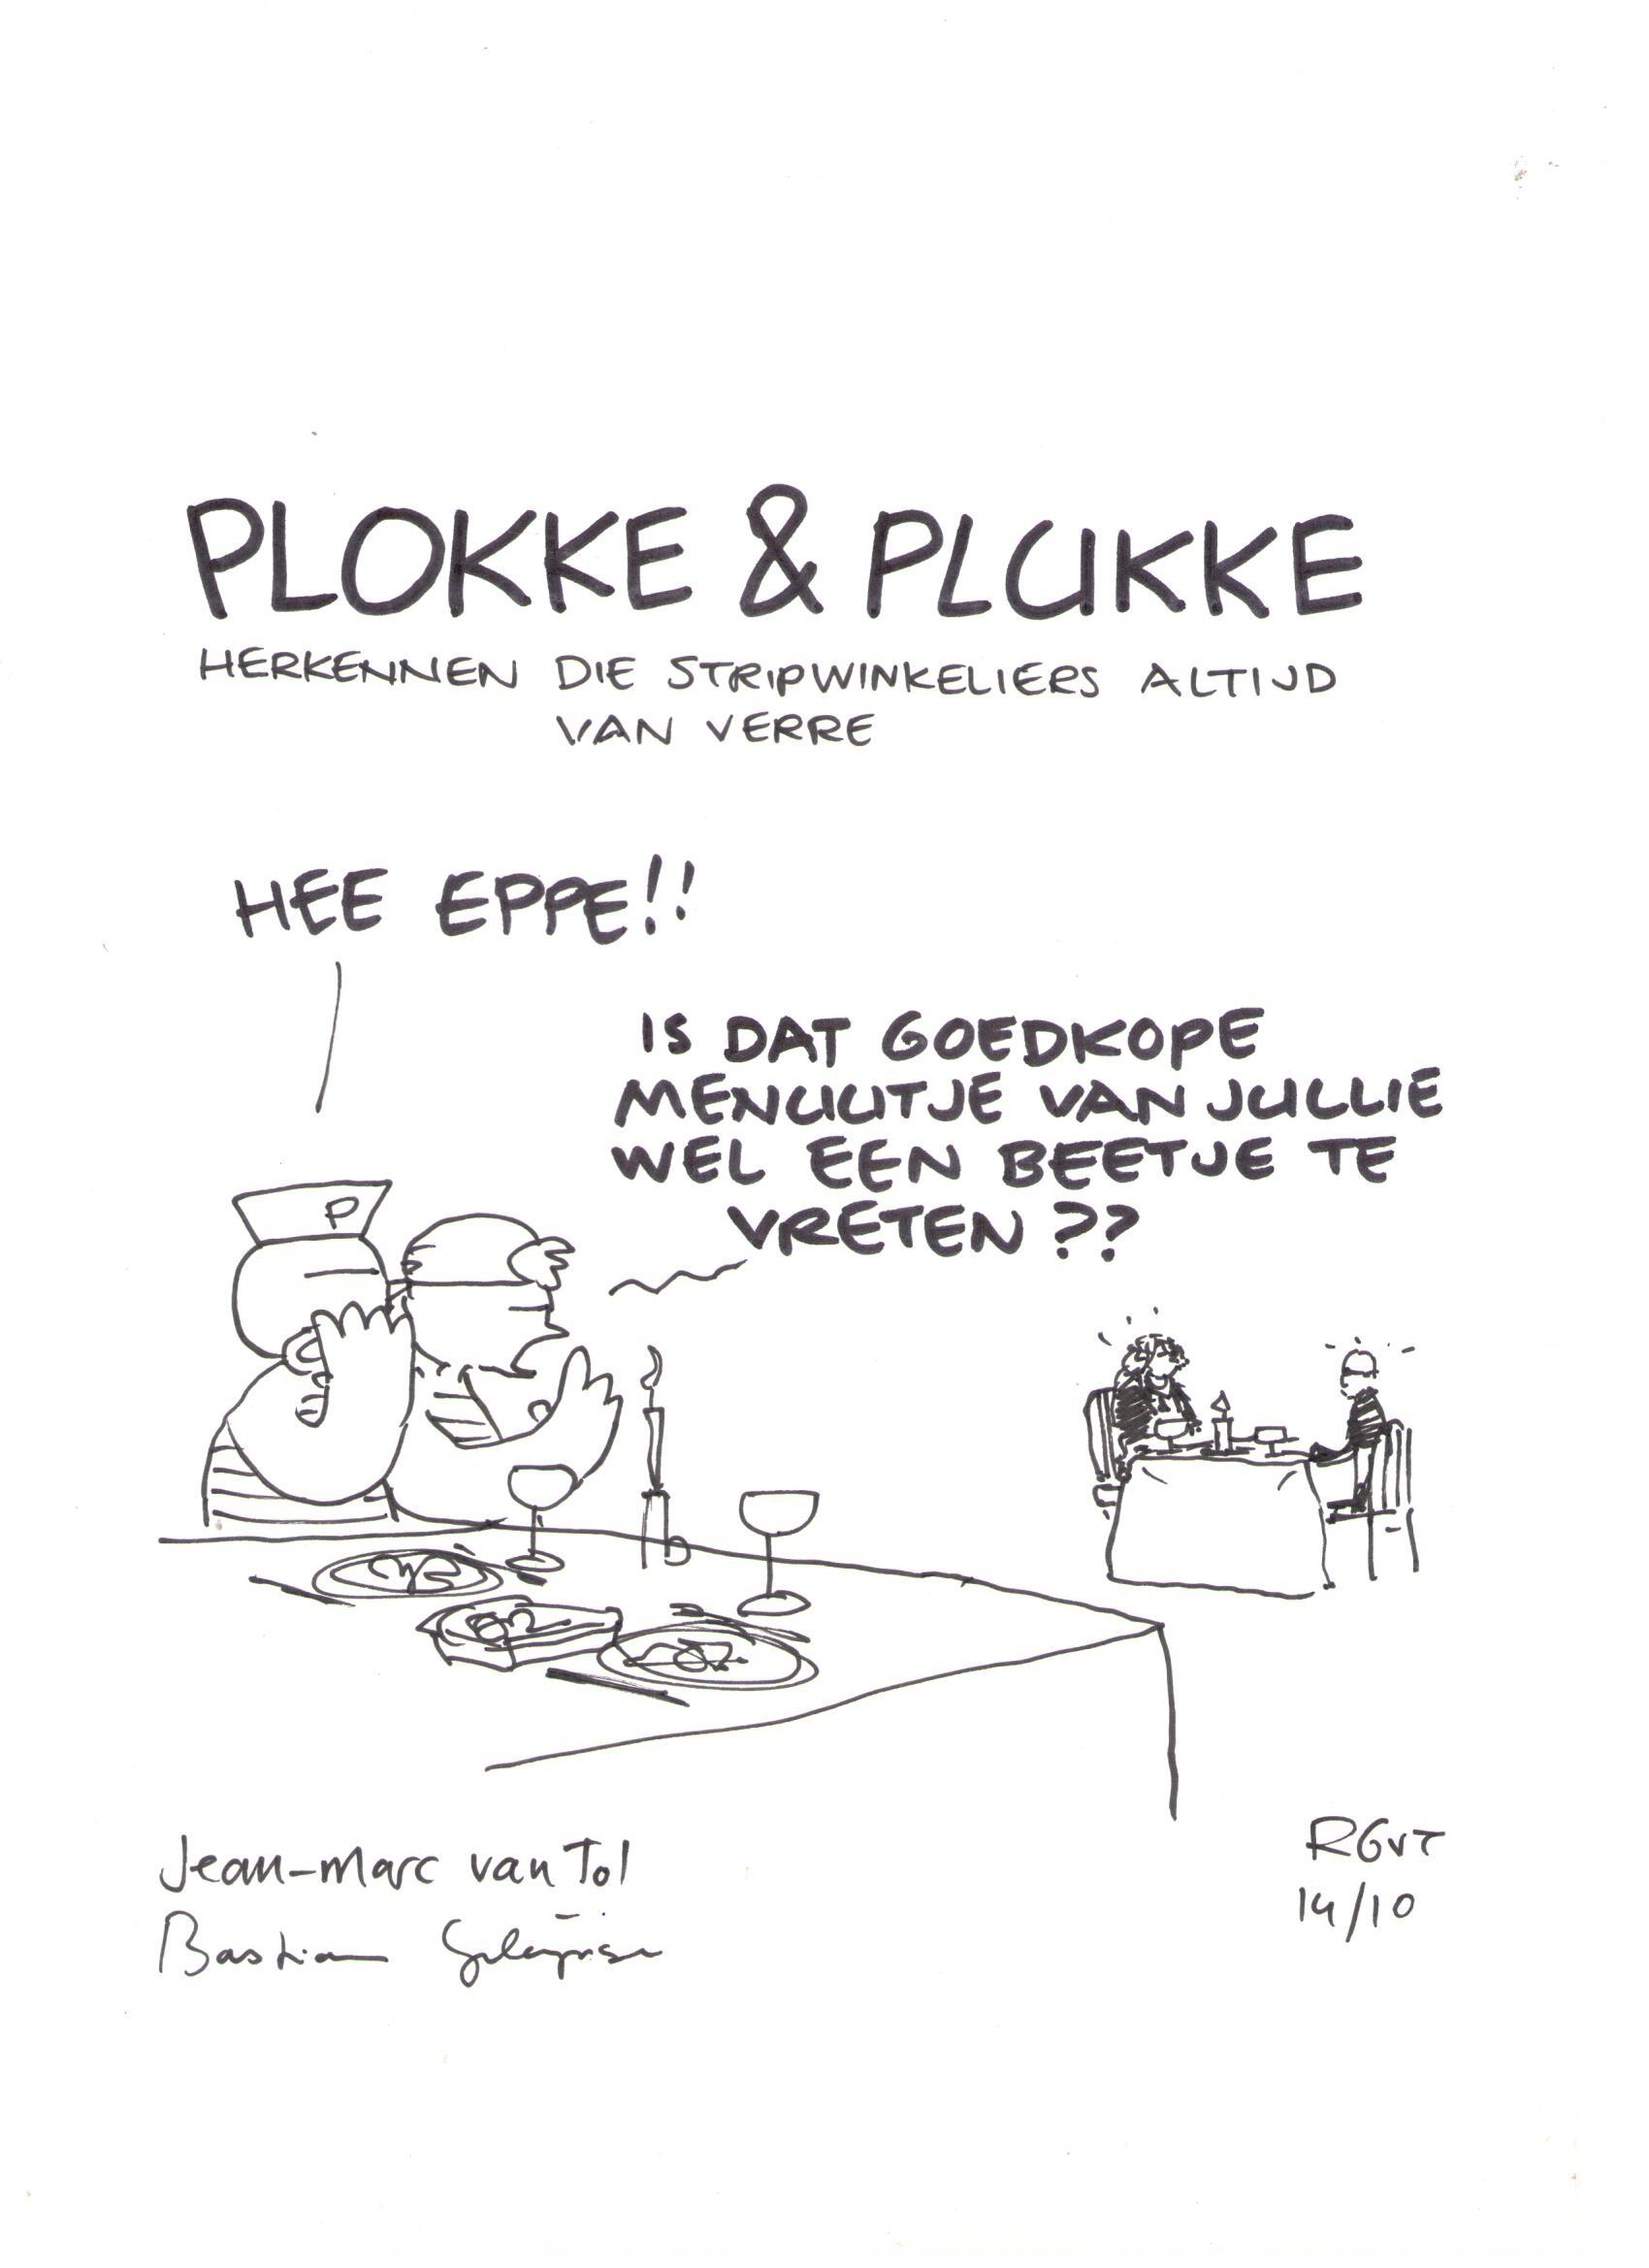 PLOKKE & PLUKKE
HERKENNEN DIE STRIPWINKELIERS ALTIJD
VAN VERRE
HEE EPPE!!
IS DAT GOEDKOPE
MENUUTJE VAN JULLIE
WEL EEN BEETJE TE
VRETEN ??
P
Jean-Marc van Tol
Bastiaan Geleijnse
RGvT
14/10